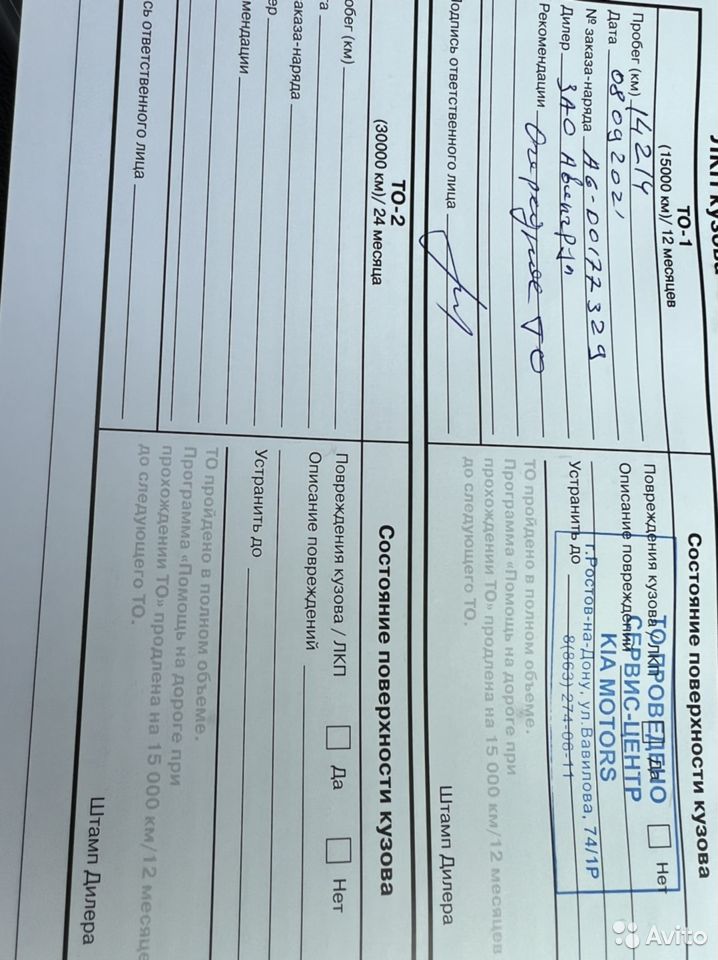 ЛКП кузова
ТО-1
(15000 км)/ 12 месяцев
Пробег (км) 14214
Дата 08 09 2021
№ заказа-наряда АБ-D0177329
Дилер ЗАО
Рекомендации Очередное ТО
Подпись ответственного лица
Состояние поверхности кузова
Повреждения кузова / ЛКП Да Нет
Описание повреждений
Устранить до
ТО ПРОВЕДЕНО
СЕРВИС-ЦЕНТР
KIA MOTORS
г.Ростов-на-Дону, ул.Вавилова, 74/1Р
8(863) 274-06-11
ТО пройдено в полном объеме.
Программа «Помощь на дороге при
прохождении ТО» продлена на 15 000 км/12 месяцев
до следующего ТО.
Штамп Дилера
ТО-2
(30000 км)/ 24 месяца
обег (км)
та
заказа-наряда
ер
мендации
сь ответственного лица
Состояние поверхности кузова
Повреждения кузова / ЛКП Да Нет
Описание повреждений
Устранить до
ТО пройдено в полном объеме.
Программа «Помощь на дороге при
прохождении ТО» продлена на 15 000 км/12 месяце
до следующего ТО.
Штамп Дилера
Avito